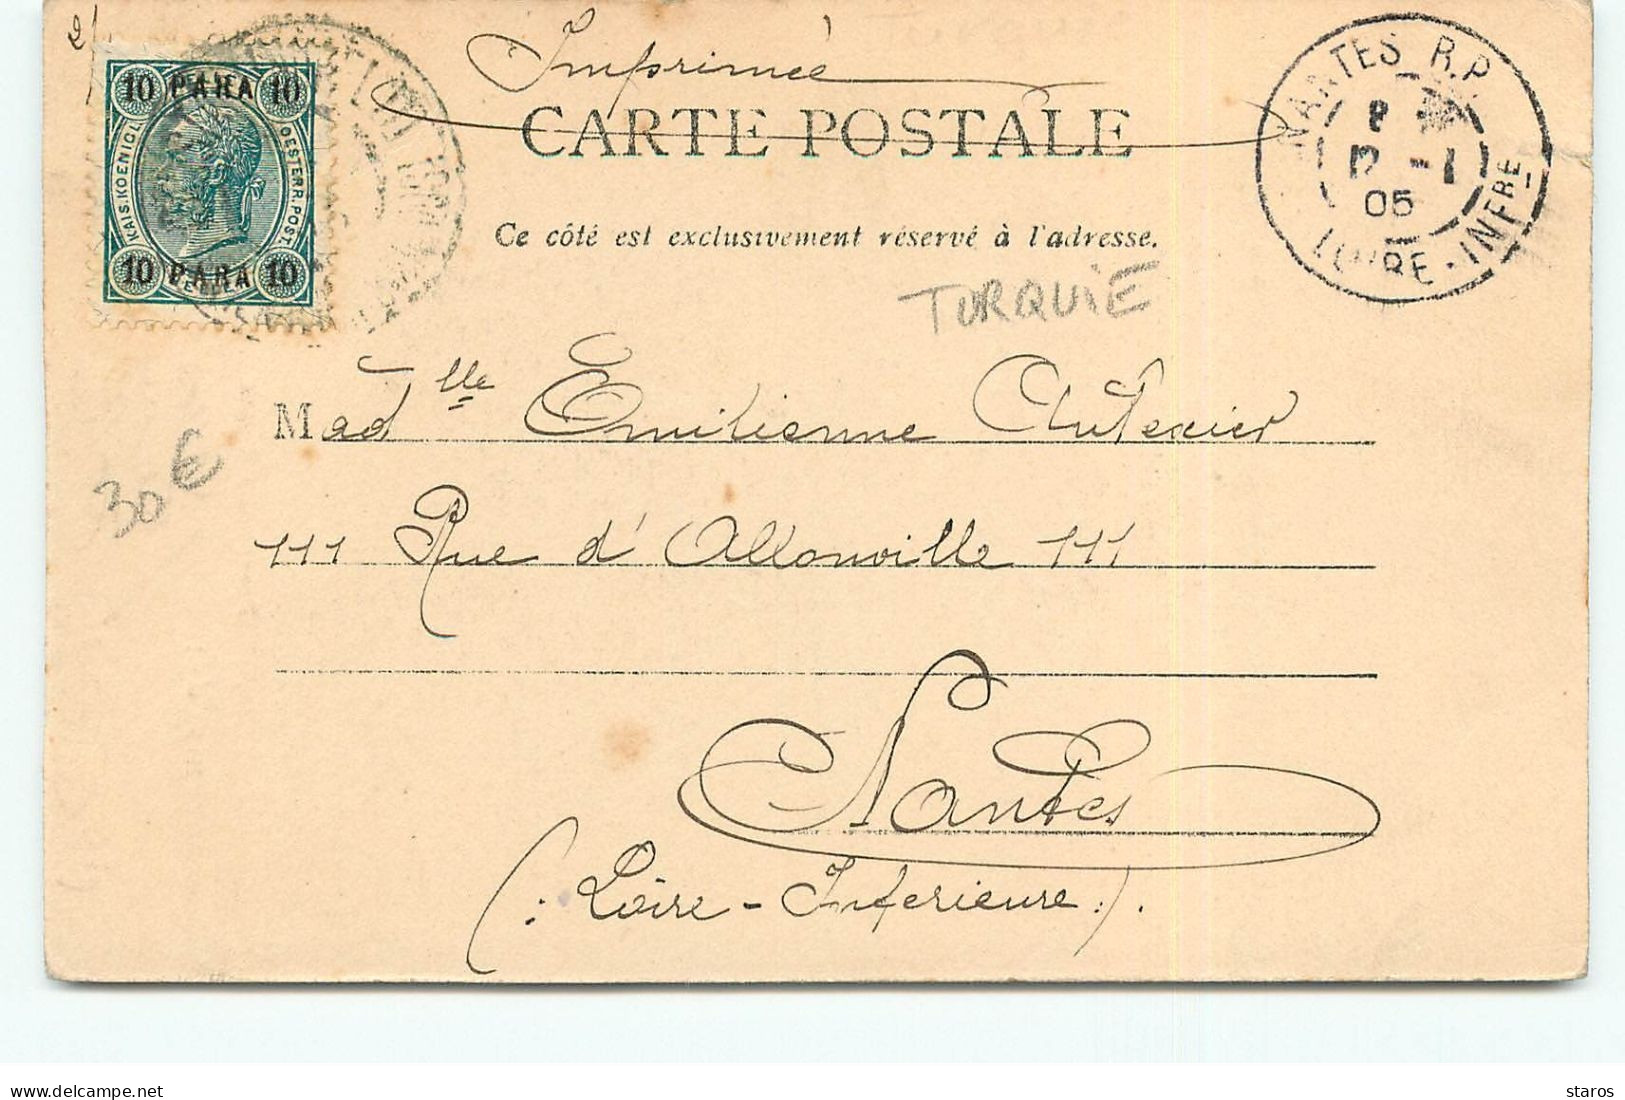 2/
Imprimée
CARTE POSTALE
Ce côté est exclusivement réservé à l'adresse.
10 PARA 10
KAIS. KOENIGL. OESTERR. POST.
10 PARA 10
NANTES R.P.
8
12 -1
05
LOIRE-INFRE
TURQUIE
Madlle Emilienne Autexier
30 €
111 Rue d'Allonville 111
Nantes
(: Loire-Inferieure :).
Delcampe.net
staros